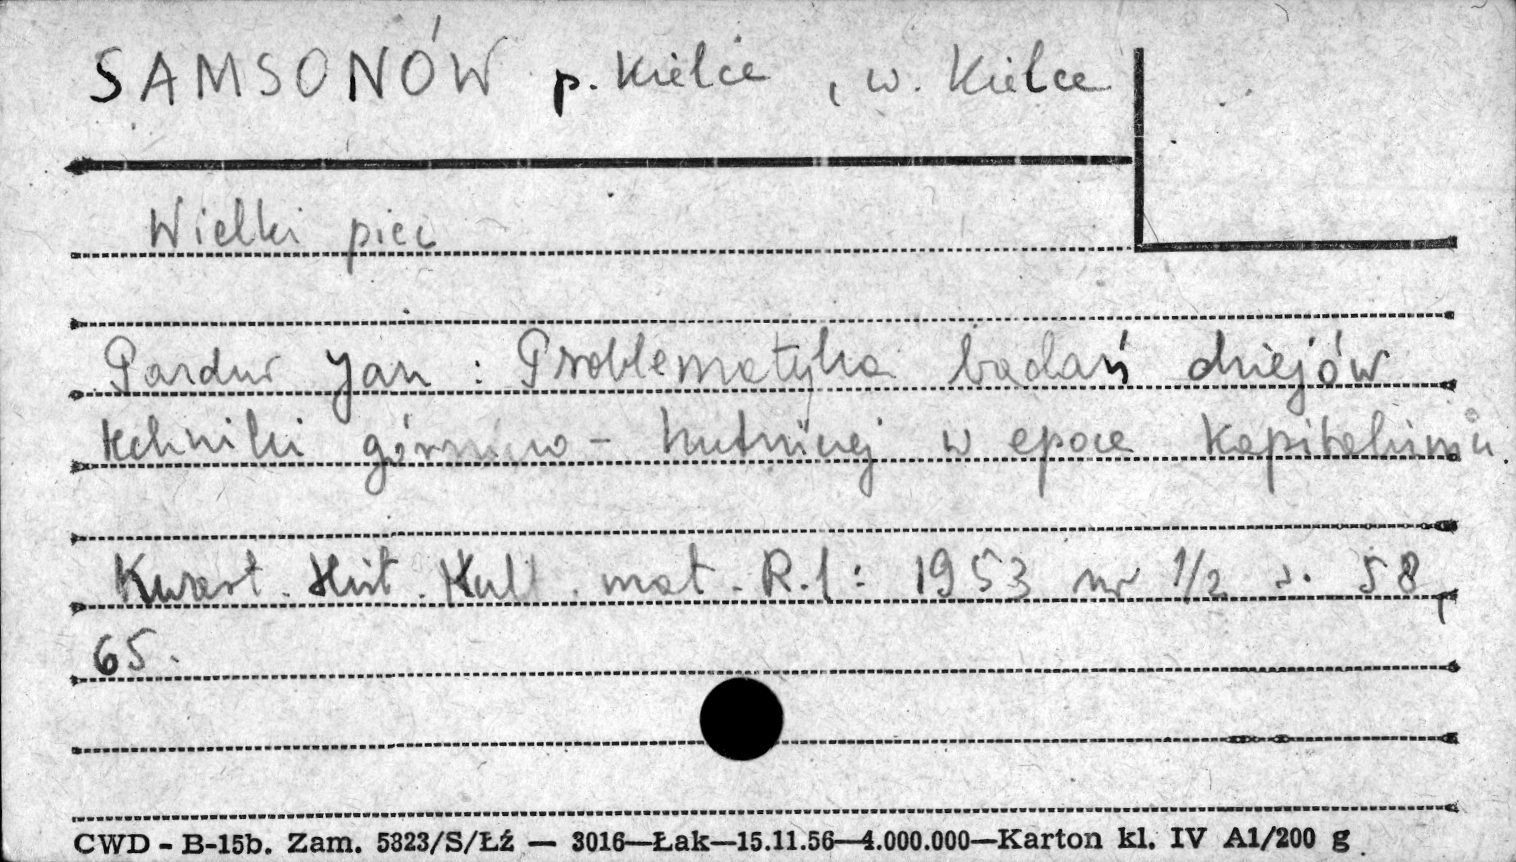 SAMSONÓW p. Kielce, w. Kielce
Wielki piec
Pazdur Jan : Problematyka badań dziejów
techniki górniczo - hutniczej w epoce kapitalizmu.
Kwart. Hist. Kult. mat. R.1: 1953 nr 1/2 s. 58,
65.
CWD - B-15b. Zam. 5823/S/Łź — 3016—Łak—15.11.56—4.000.000—Karton kl. IV A1/200 g